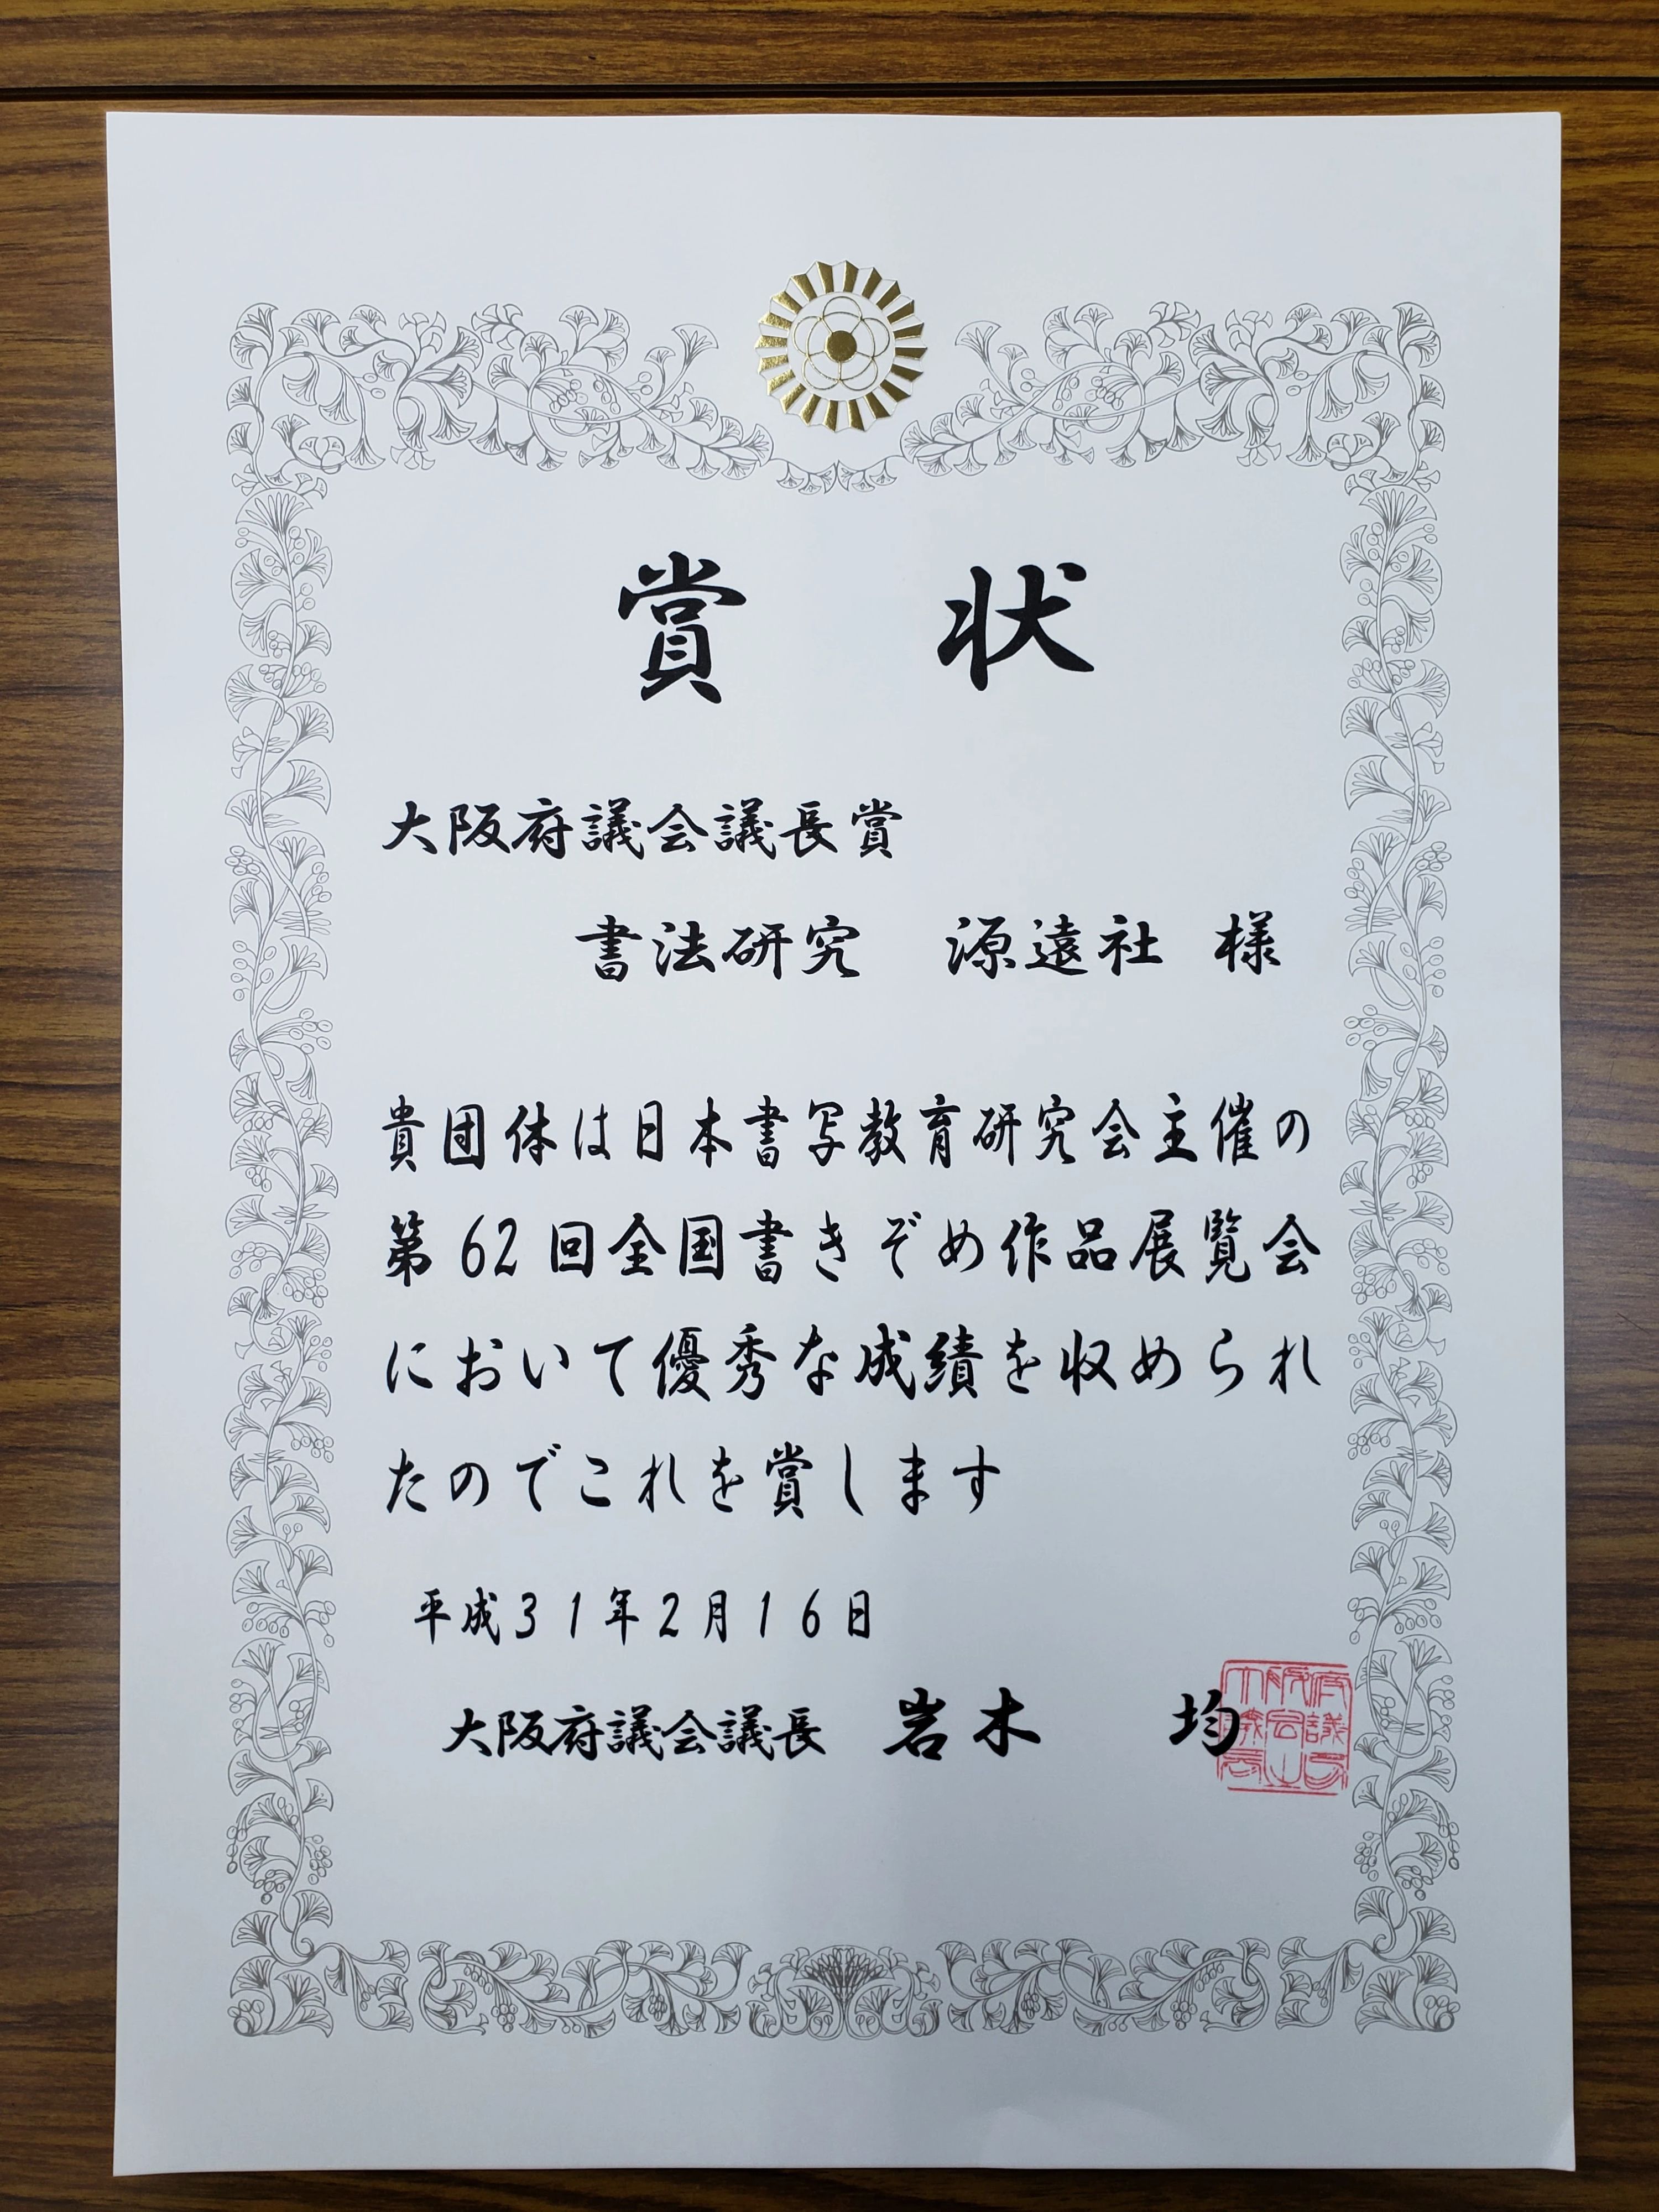 賞状
大阪府議会議長賞
書法研究 源遠社 様
貴団体は日本書写教育研究会主催の
第62回全国書きぞめ作品展覧会
において優秀な成績を収められ
たのでこれを賞します
平成31年2月16日
大阪府議会議長 岩木 均